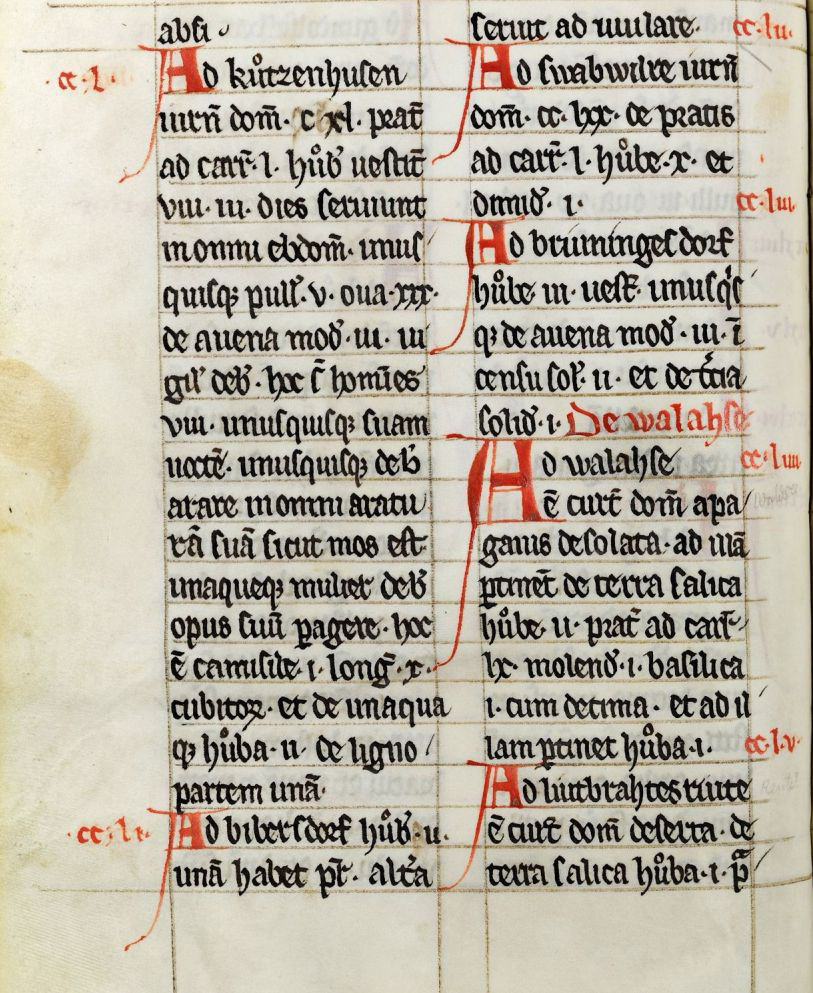 absi
cc·l· Ad kůtzenhusen
iurñ dom̄· c xl· prat̄
ad carr̄·l· hůb̄ uestit̄
viii· iii· dies seruiunt
in omni ebdom̄· unus
quisq; pull̄·v· oua·xxx·
de auena mod̄·iii· iii
deb̄· hoc s̄ homīes
viii· unusquisq; suam
noctē· unusquisq; deb̄
arare in omni aratu
rā suā sicut mos est·
unaqueq; mulier deb̄
opus suū ꝑagere· hoc
ē camisile·i· lonḡ·x·
cubitoꝝ· et de unaqua
q; hůba·ii· de ligno
partem unā·
·cc·l·i· Ad bibersdorf hůb̄·ii·
unā habet pr̄· altā
seruit ad uuilare· cc·l·ii·
Ad swabwilre iurñ
dom̄· cc·lxx· de pratis
ad carr̄·l· hůbe·x· et
dimid̄·i· cc·liii·
Ad bruningesdorf
hůbe iii· uest̄· unusqͥs
q; de auena mod̄·iii· ī
censu sol̄·ii· et de tͨcia
solid̄·i· De walahse
Ad walahse cc·l·iiii
ē curt̄ dom̄ a pa
ganis desolata· ad illā
ꝑtinēt de terra salica
hůbe·ii· prat̄ ad carr̄·
lx· molend̄·i· basilica
i· cum decima· et ad il
lam ꝑtinet hůba·i· cc·l·v·
Ad luitbrahtesriute
ē curt̄ dom̄ deserta· de
terra salica hůba·i· pͣ